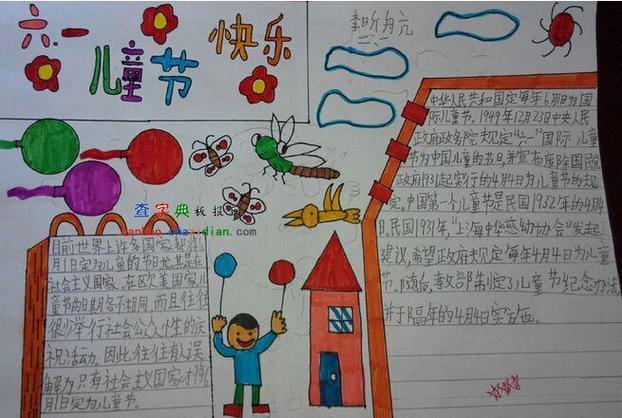 六一
儿童节
快乐
李昕舟亢
二、二
中华人民共和国定每年6月1日为国
际儿童节。1949年12月23日中央人民
政府政务院又规定“六一”国际儿童
节为中国儿童的节日,并宣布废除国民
政府1931起实行的4月4日为儿童节的规
定。中国第一个儿童节是民国1932年的4月4
日,民国1931年,“上海中华慈幼协会”发起
建议,希望政府规定每年4月4日为儿童
节。随后,教部制定了儿童节纪念办法
并于隔年的4月4日实施。
查字典板报网
chazidian.com
目前世界上许多国家都将6
月1日定为儿童的节日尤其是在
社会主义国家。在区欠美国家,儿
童节的日期各不相同,而且往往
很少举行社会公众性的庆
祝活动。因此,往往有人误
解为只有社会主义国家才将6
月1日定为儿童节。